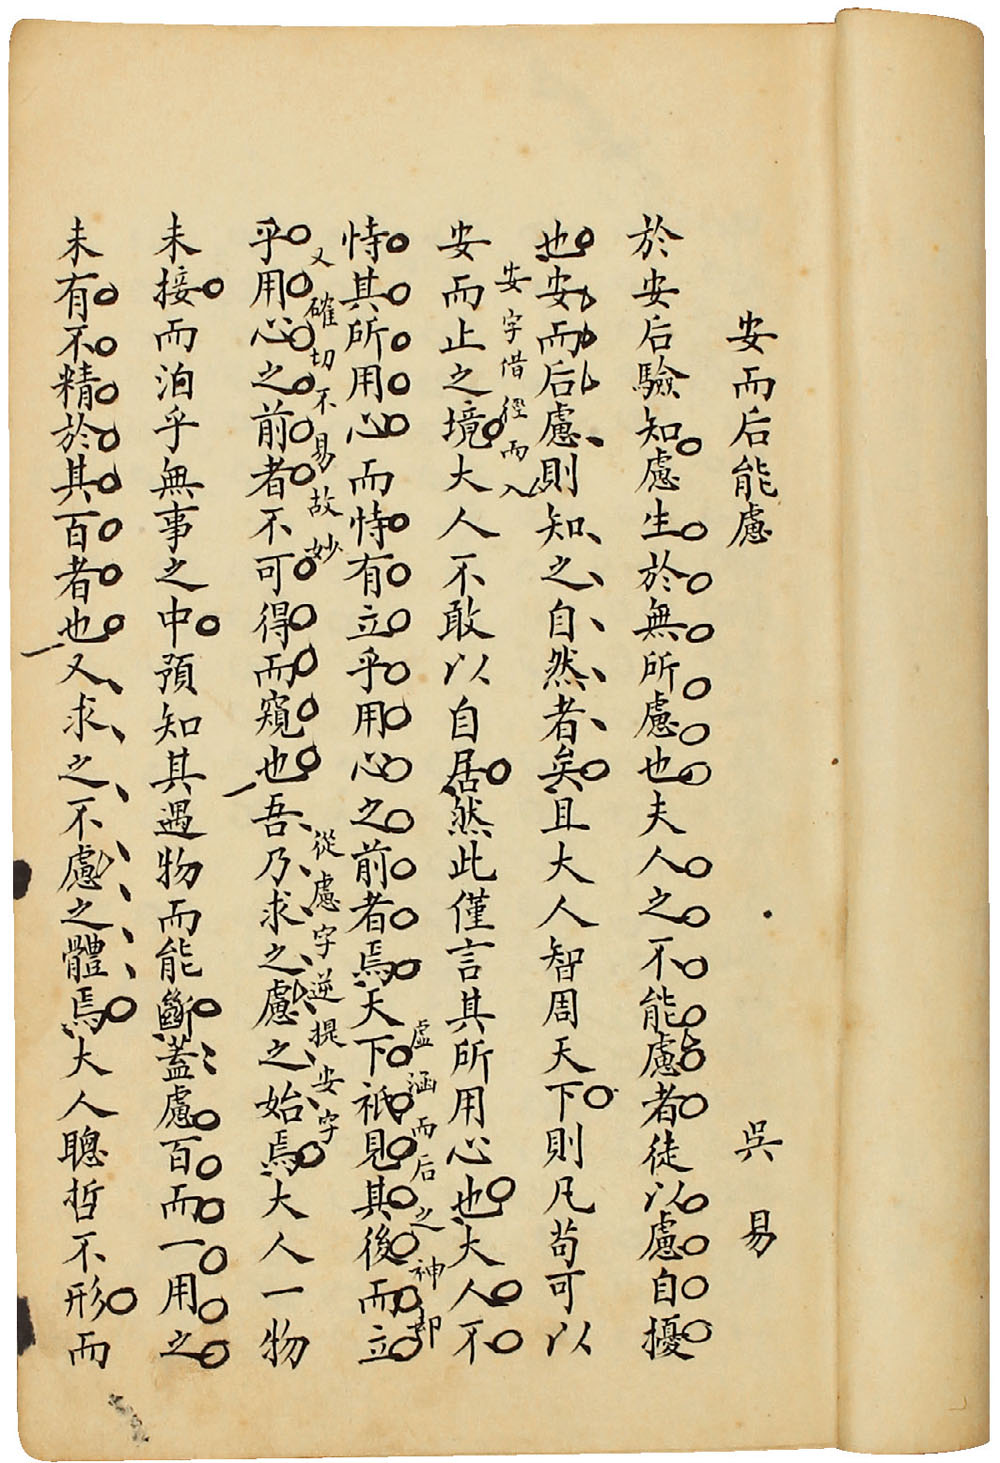 安而后能慮　吳易
於安后驗知慮生於無所慮也夫人之不能慮者徒以慮自擾
也安而后慮則知之自然者矣且大人智周天下則凡苟可以
安字借徑而入
安而止之境大人不敢以自居然此僅言其所用心也大人不
虛涵而后之神卽
恃其所用心而恃有立乎用心之前者焉天下祇見其後而立
又確切不易故妙
從慮字逆提安字
乎用心之前者不可得而窺也吾乃求之慮之始焉大人一物
未接而泊乎無事之中預知其遇物而能斷蓋慮百而一用之
未有不精於其百者也又求之不慮之體焉大人聰哲不形而